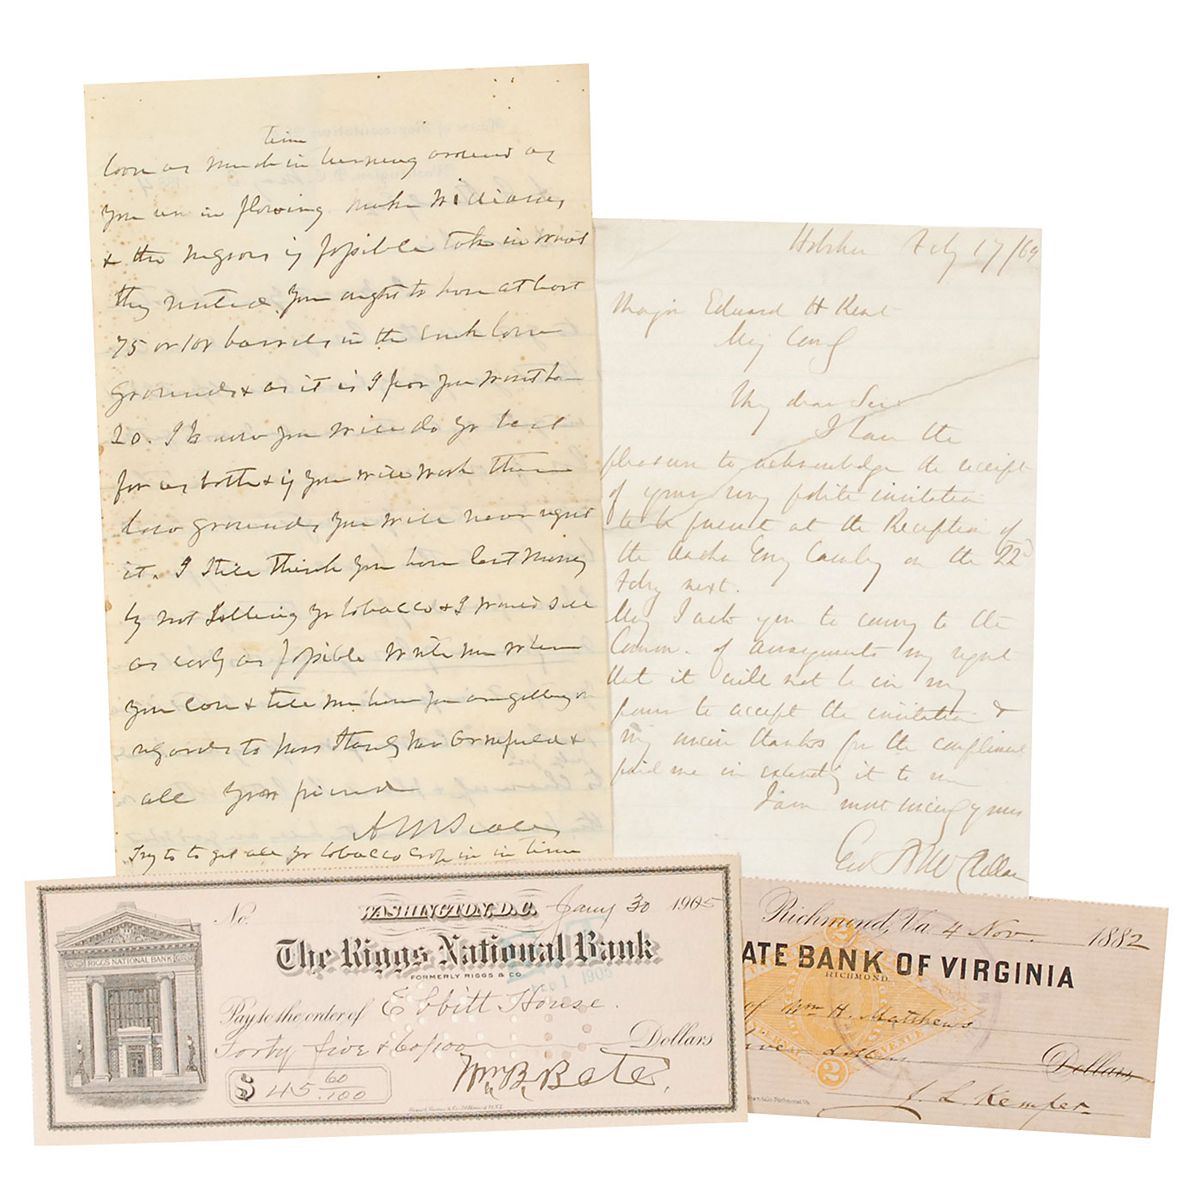 time
loose as much in turning around as
you in plowing make Williams
& the negroes if possible take in what
they united. You ought to have at least
75 or 100 barrels in the corn
grounds & as it is I fear you wont have
20. I know you will do yr best
for us both & if you will work them
low grounds you will never regret
it. I still think you have lost money
by not selling yr tobacco & I would sell
as early as possible write me when
you can & tell me how you are getting on
regards to
all your friend
A M Scales
Try to get all yr tobacco crop in in time
Feby 17/69
Major Edward H Kent
My dear Sir
I have the
pleasure to acknowledge the receipt
of your very polite invitation
to be present at the Reception of
the on the 22d
Feby next.
May I ask you to convey to the
Comm. of arrangements my regret
that it will not be in my
power to accept the invitation &
my sincere thanks for the compliment
paid me in extending it to me
I am most sincerely yours
Geo B McClellan
No. WASHINGTON, D.C. Jany 30 1905
The Riggs National Bank
FORMERLY RIGGS & CO.
RIGGS NATIONAL BANK
Pay to the order of Ebbitt House.
Forty five & 60/100 Dollars
$ 45 60/100
Wm B. Bate
Richmond, Va. 4 Nov. 1882
ATE BANK OF VIRGINIA
RICHMOND.
of Wm H. Matthews
Dollars
J. L. Kemper
2
2